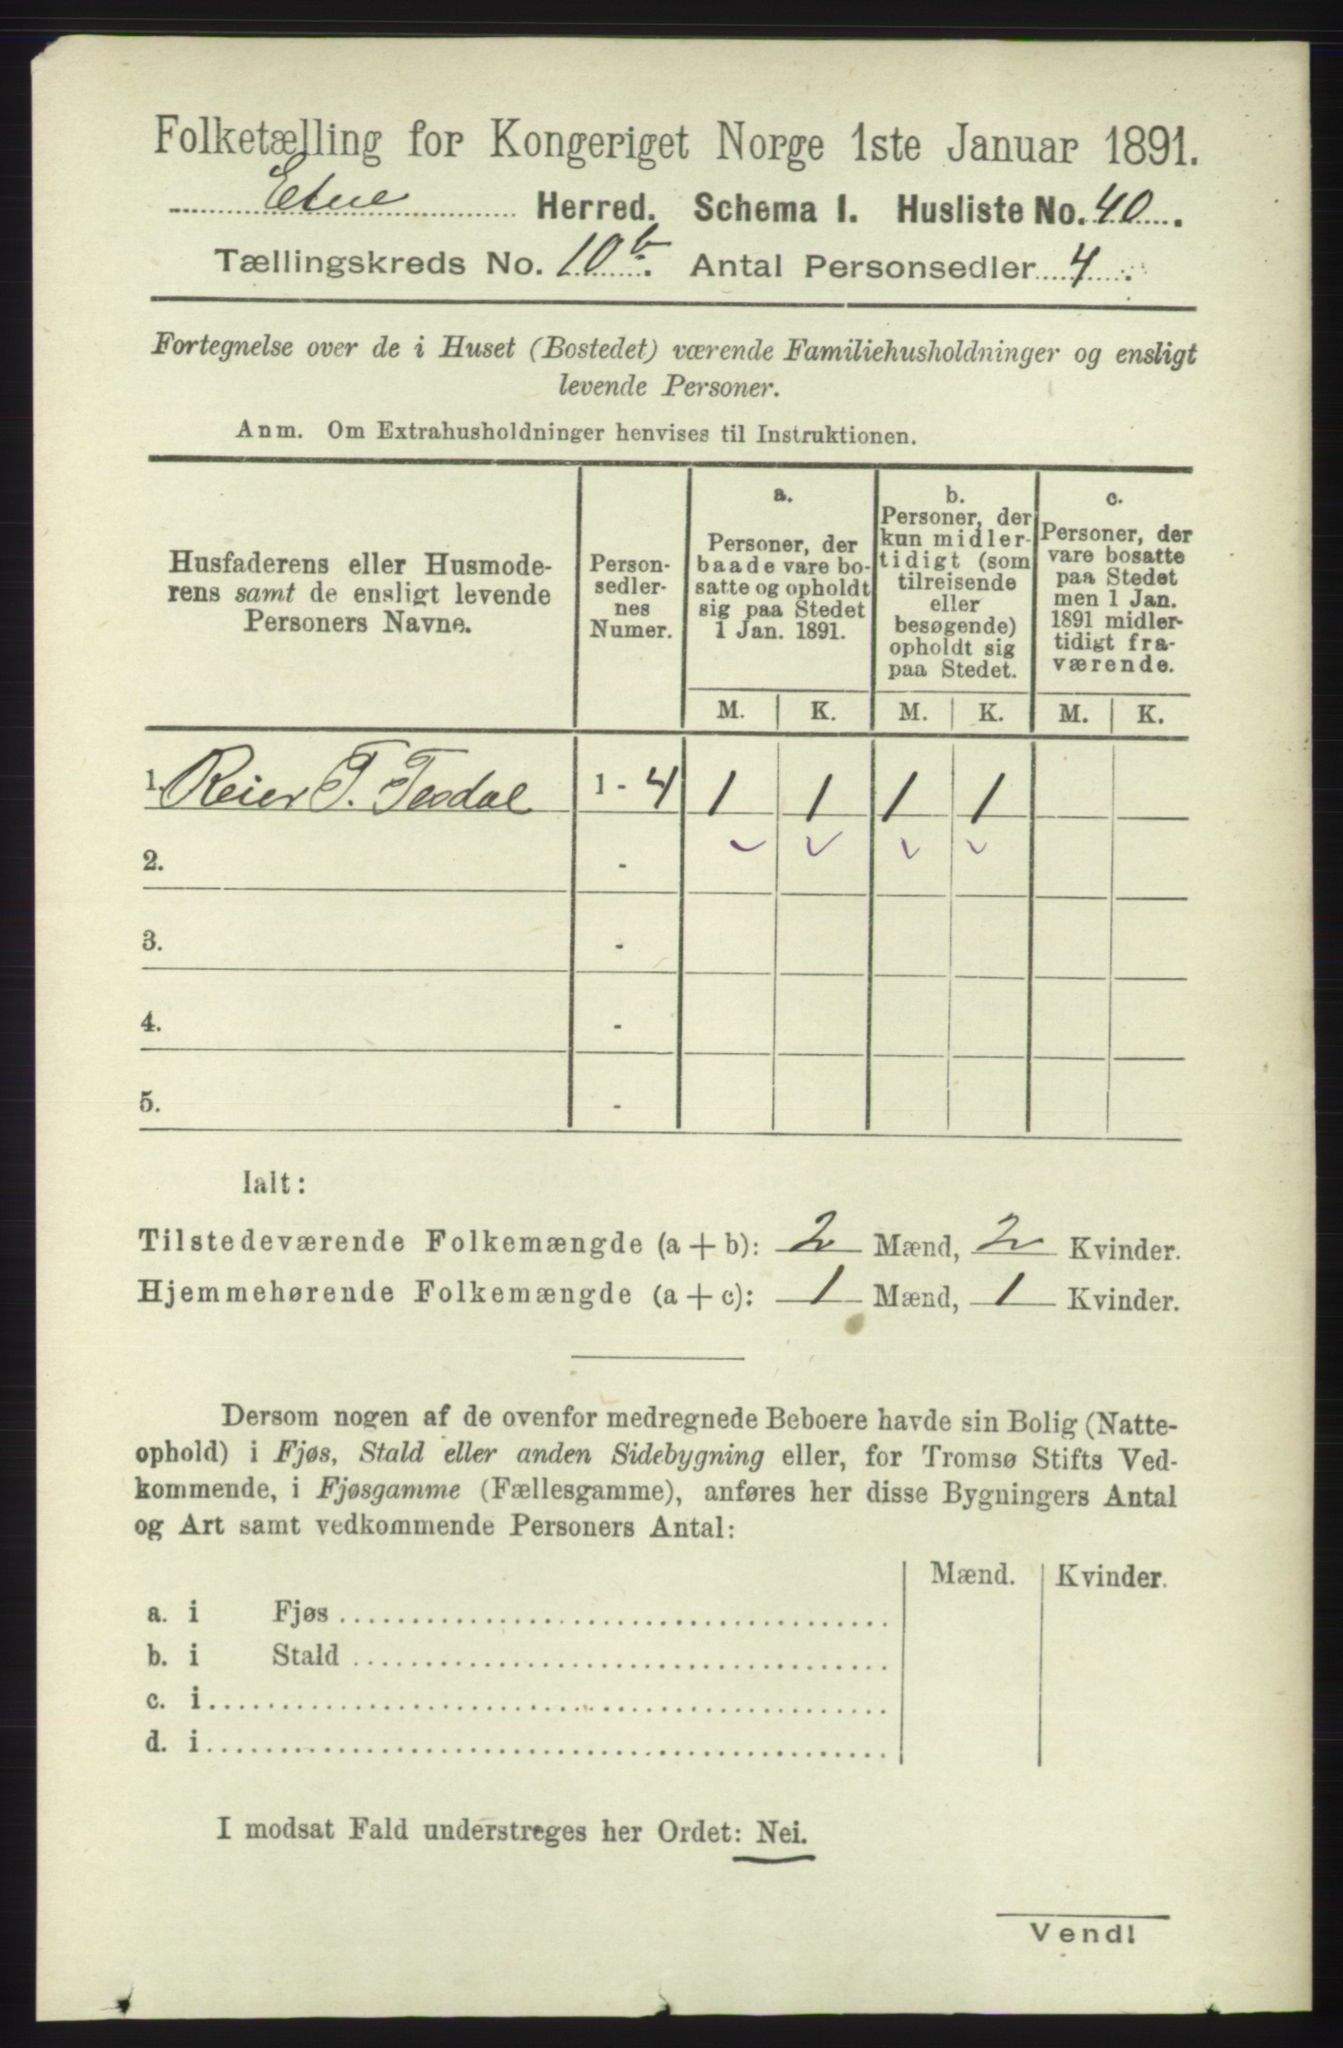 Folketælling for Kongeriget Norge 1ste Januar 1891.
Etne Herred. Schema I. Husliste No. 40.
Tællingskreds No. 10 b. Antal Personsedler 4.
Fortegnelse over de i Huset (Bostedet) værende Familiehusholdninger og ensligt
levende Personer.
Anm. Om Extrahusholdninger henvises til Instruktionen.
Husfaderens eller Husmode-
rens samt de ensligt levende
Personers Navne.
Person-
sedler-
nes
Numer.
a.
Personer, der
baade vare bo-
satte og opholdt
sig paa Stedet
1 Jan. 1891.
b.
Personer, der
kun midler-
tidigt (som
tilreisende
eller
besøgende)
opholdt sig
paa Stedet.
c.
Personer, der
vare bosatte
paa Stedet
men 1 Jan.
1891 midler-
tidigt fra-
værende.
M. K. M. K. M. K.
1. Reier T. Tesdal 1 - 4 1 1 1 1
2. -
3. -
4. -
5. -
Ialt:
Tilstedeværende Folkemængde (a + b): 2 Mænd, 2 Kvinder.
Hjemmehørende Folkemængde (a + c): 1 Mænd, 1 Kvinder.
Dersom nogen af de ovenfor medregnede Beboere havde sin Bolig (Natte-
ophold) i Fjøs, Stald eller anden Sidebygning eller, for Tromsø Stifts Ved-
kommende, i Fjøsgamme (Fællesgamme), anføres her disse Bygningers Antal
og Art samt vedkommende Personers Antal:
Mænd. Kvinder.
a. i Fjøs
b. i Stald
c. i
d. i
I modsat Fald understreges her Ordet: Nei.
Vend!